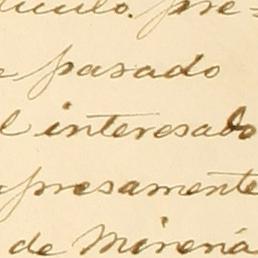 ículo. pre=
pasado
l interesado
presamente
de Minería